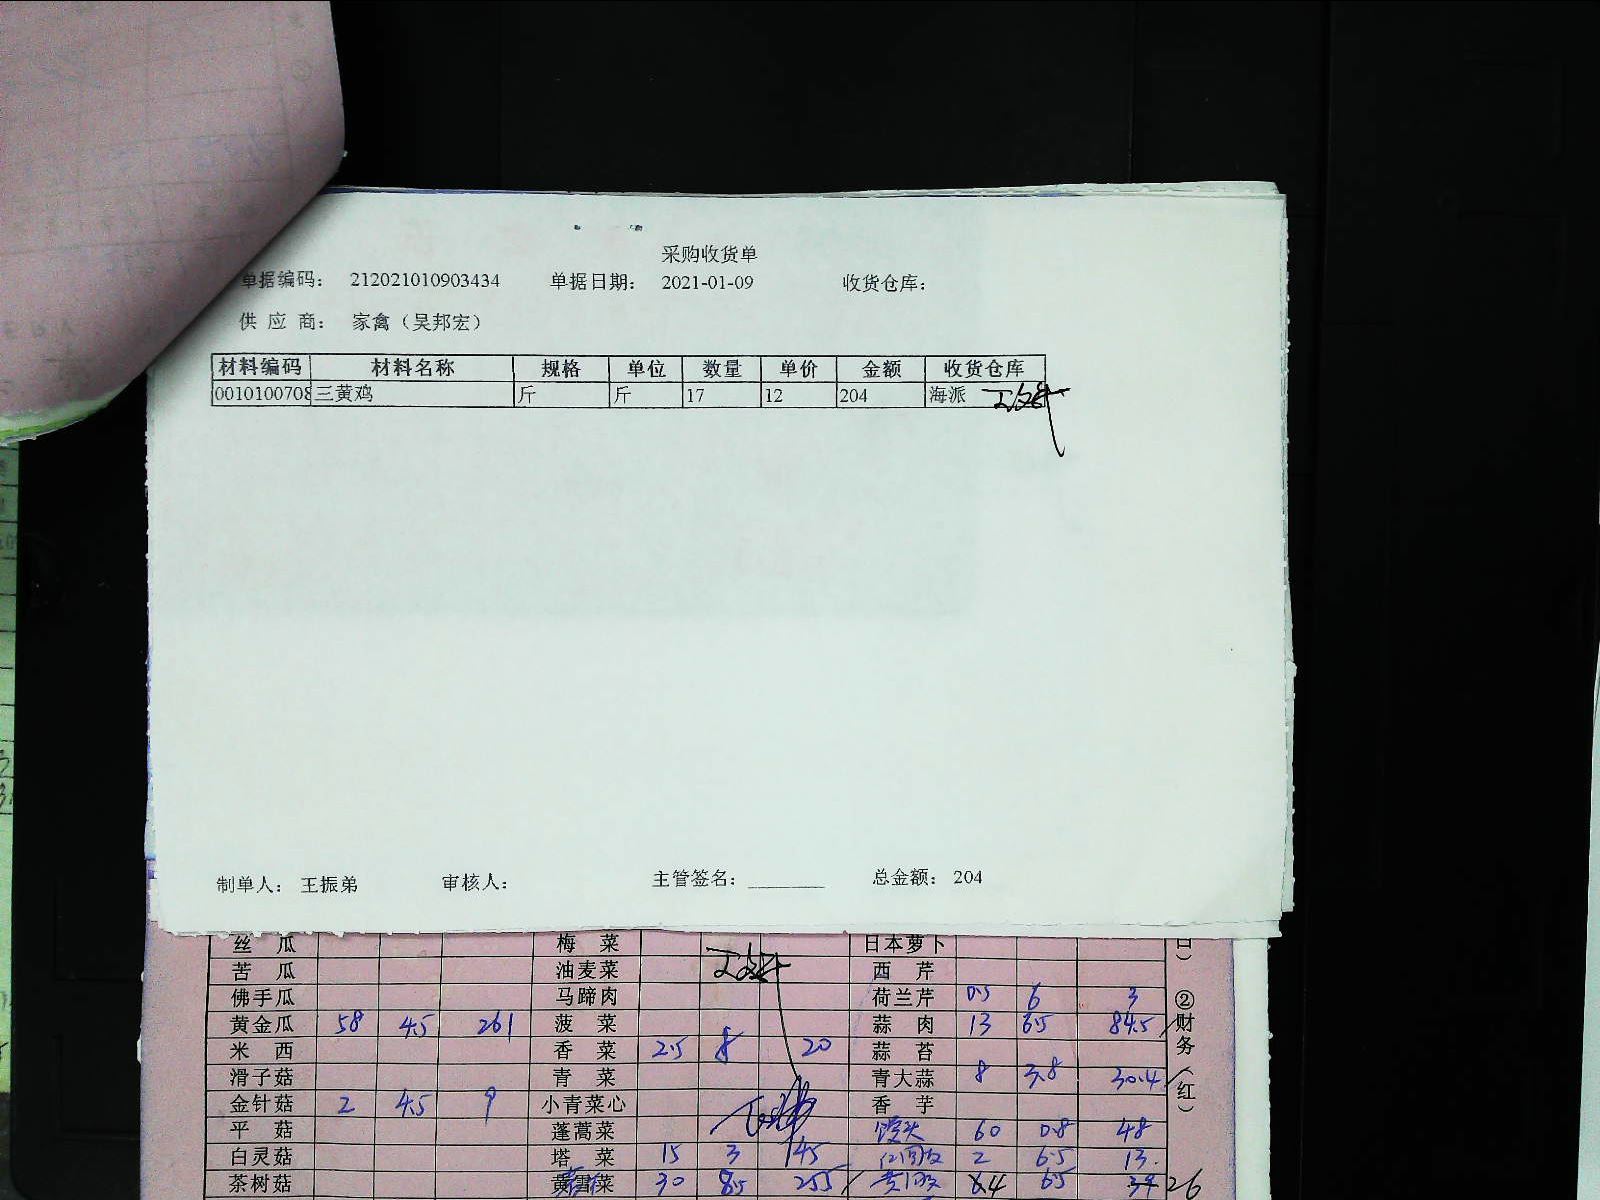 采购收货单
单据编码： 212021010903434 单据日期： 2021-01-09 收货仓库：
供 应 商： 家禽（吴邦宏）
材料编码 材料名称 规格 单位 数量 单价 金额 收货仓库
0010100708 三黄鸡 斤 斤 17 12 204 海派
制单人： 王振弟 审核人： 主管签名： 总金额： 204
丝 瓜 梅 菜 日本萝卜
苦 瓜 油麦菜 西 芹
佛手瓜 马蹄肉 荷兰芹 0.5 6 3
黄金瓜 58 4.5 261 菠 菜 蒜 肉 13 6.5 84.5
米 西 香 菜 2.5 8 20 蒜 苔
滑子菇 青 菜 青大蒜 8 3.8 30.4
金针菇 2 4.5 9 小青菜心 香 芋
平 菇 蓬蒿菜 馒头 60 0.8 48
白灵菇 塔 菜 15 3 45 2 6.5 13
茶树菇 30 8.5 255 4 6.5 26
②财务（红）